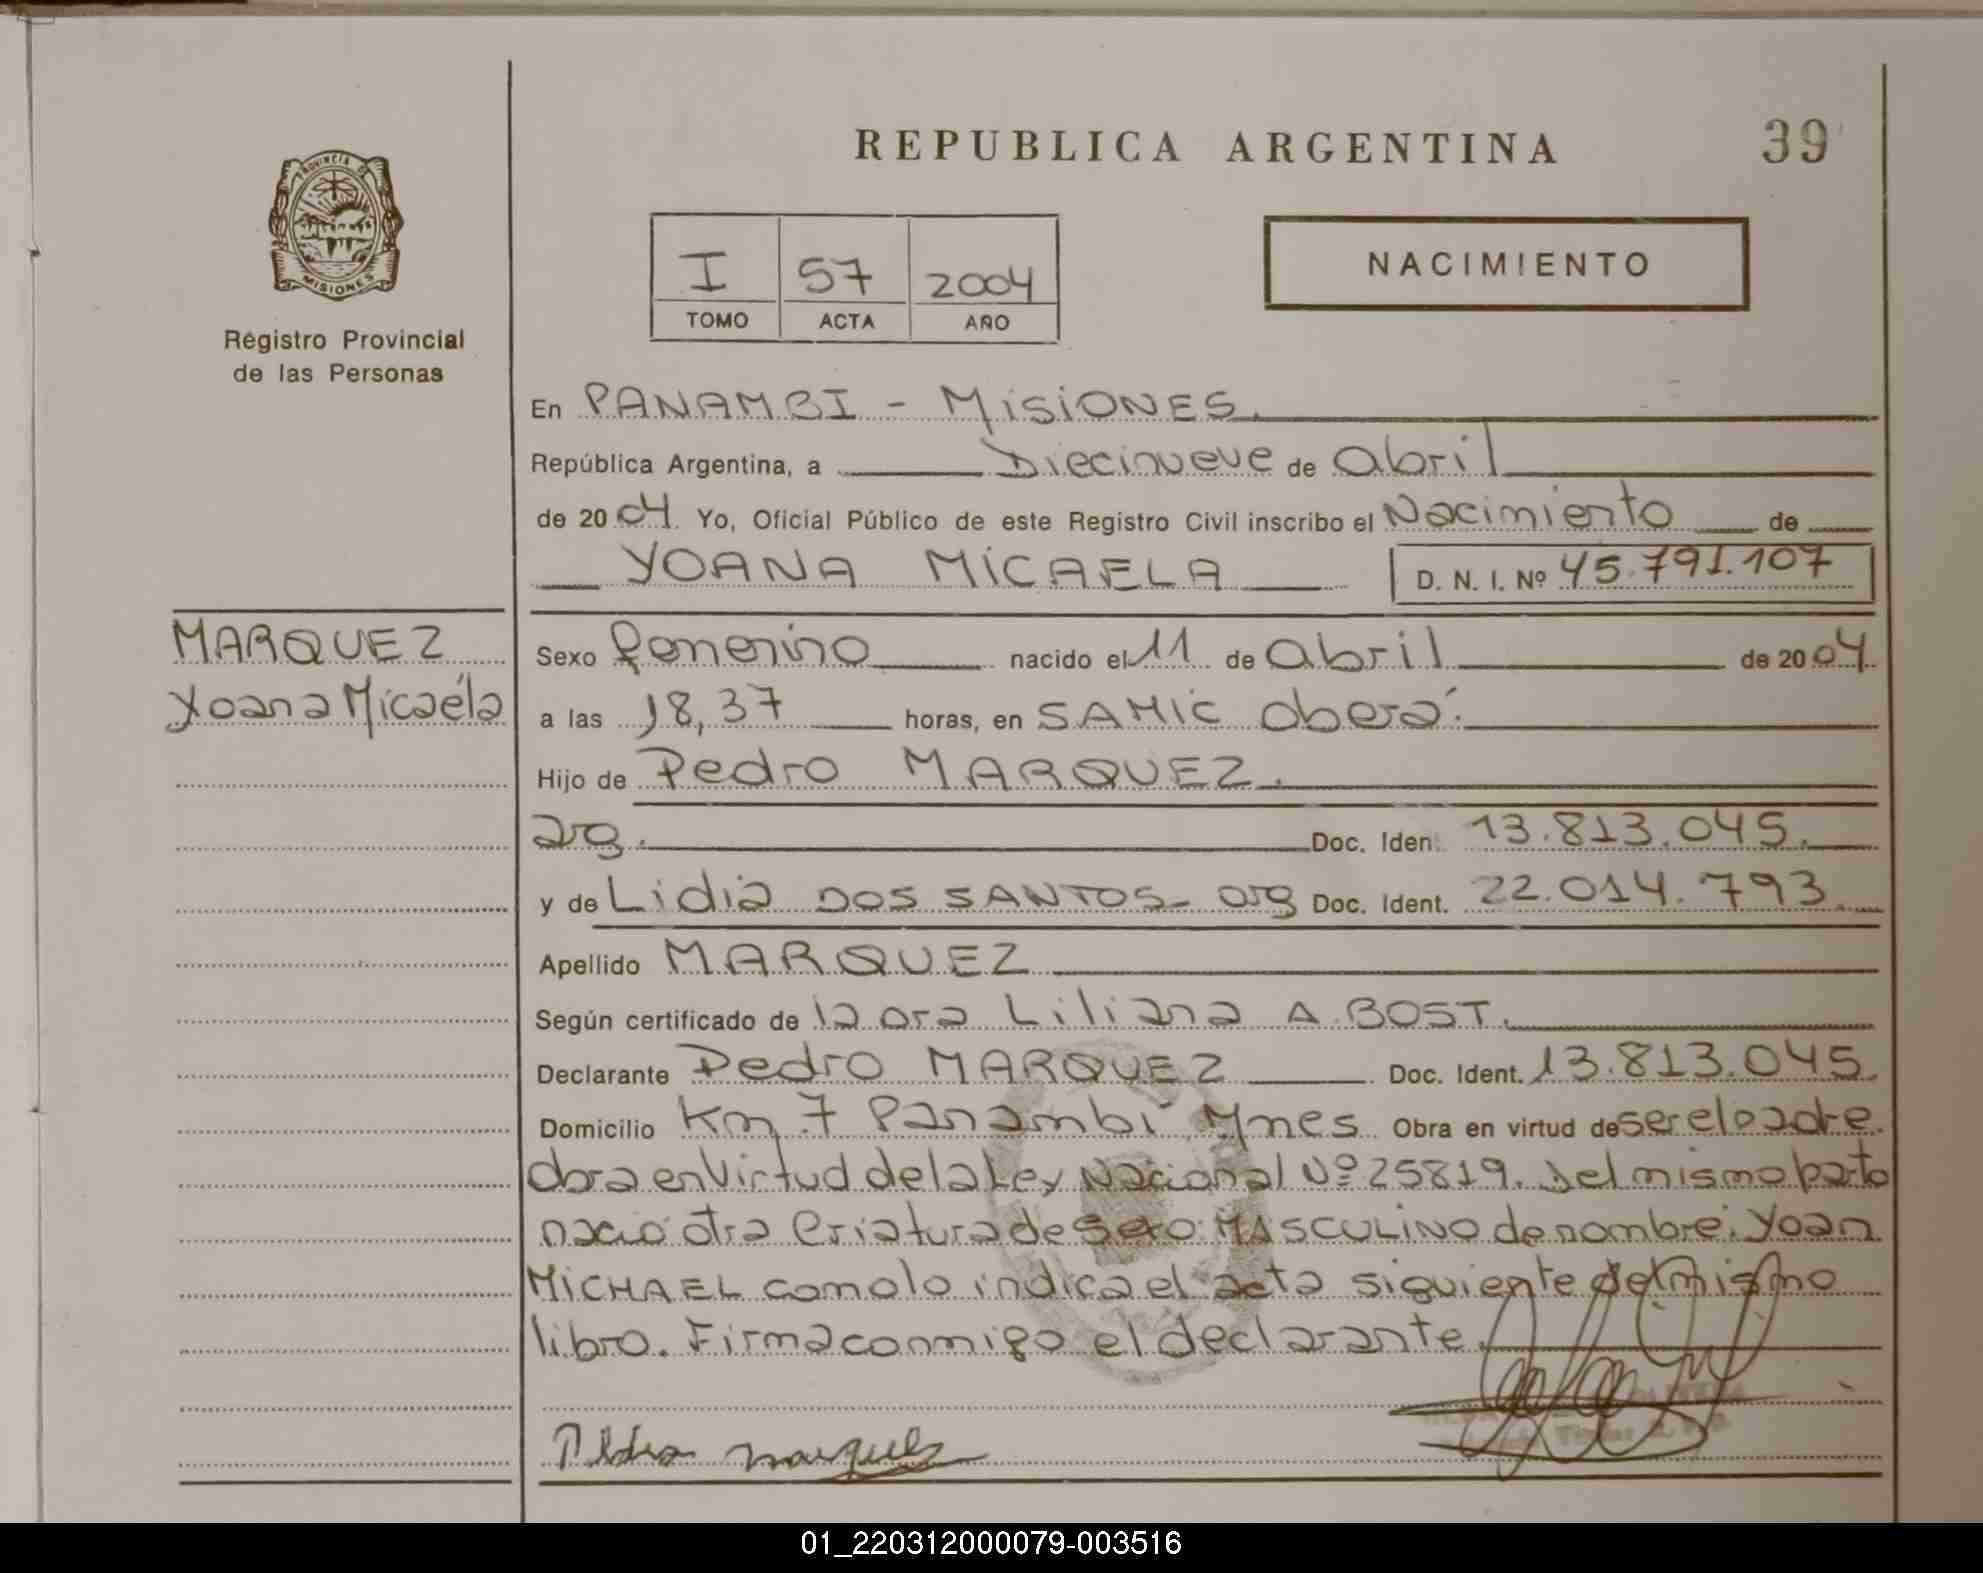 REPUBLICA ARGENTINA
39
PROVINCIA DE
MISIONES
Registro Provincial
de las Personas
I 57 2004
TOMO ACTA AÑO
NACIMIENTO
En PANAMBI - MISIONES.
República Argentina, a Diecinueve de abril
de 2004 Yo, Oficial Público de este Registro Civil inscribo el Nacimiento de
YOANA MICAELA D. N. I. Nº 45.791.107
MARQUEZ
Yoana Micaéla
Sexo femenino nacido el 11 de abril de 2004
a las 18,37 horas, en SAMIC oberá.
Hijo de Pedro MARQUEZ.
arg. Doc. Iden. 13.813.045.
y de Lidia DOS SANTOS- arg Doc. Ident. 22.014.793.
Apellido MARQUEZ
Según certificado de la Dra Liliana A. BOST.
Declarante Pedro MARQUEZ Doc. Ident. 13.813.045.
Domicilio Km 7 Panambí Mnes Obra en virtud de ser el padre.
obra en Virtud de la Ley Nacional Nº 25819. Del mismo parto
nació otra Criatura de sexo: MASCULINO de nombre: Yoan
MICHAEL como lo indica el acta siguiente del mismo
libro. Firma conmigo el declarante.
Pedro marquez
01_220312000079-003516